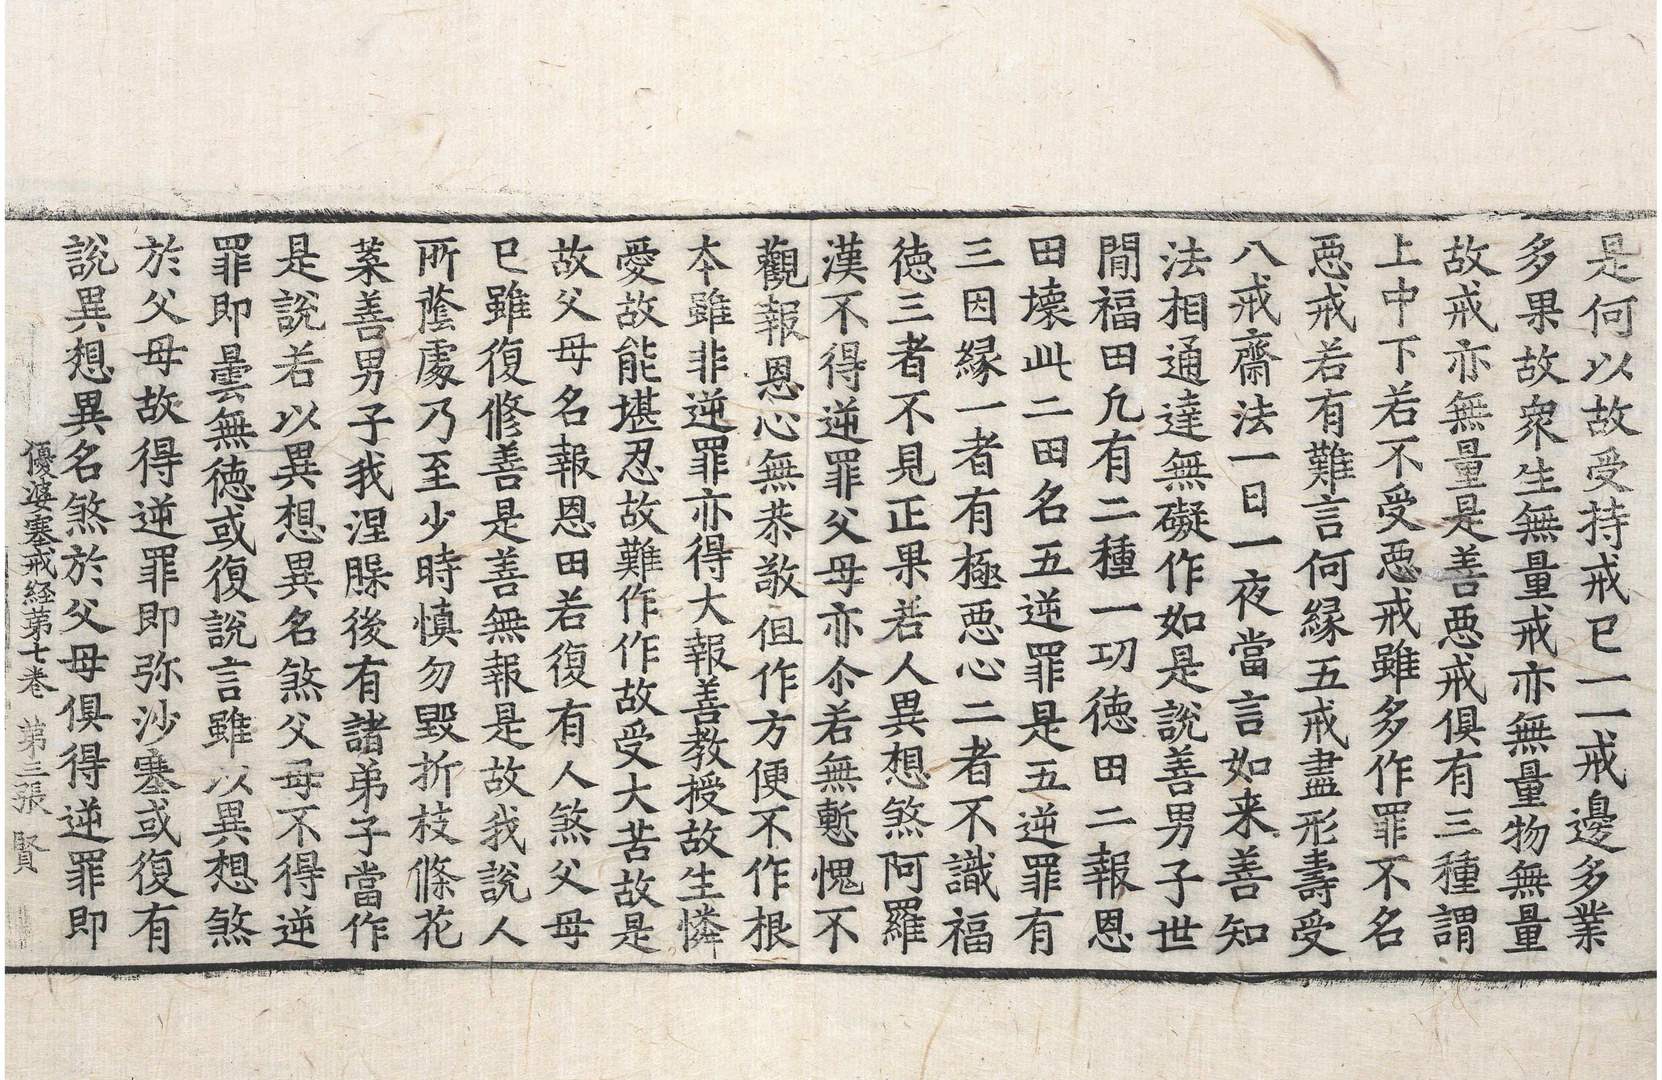 是何以故受持戒已一一戒邊多業
多果故衆生無量戒亦無量物無量
故戒亦無量是善惡戒俱有三種謂
上中下若不受惡戒雖多作罪不名
惡戒若有難言何縁五戒盡形壽受
八戒齋法一日一夜當言如来善知
法相通達無礙作如是說善男子世
間福田凢有二種一切徳田二報恩
田壞此二田名五逆罪是五逆罪有
三因縁一者有極惡心二者不識福
徳三者不見正果若人異想煞阿羅
漢不得逆罪父母亦尒若無慙愧不
觀報恩心無恭敬但作方便不作根
本雖非逆罪亦得大報善教授故生憐
愛故能堪忍故難作作故受大苦故是
故父母名報恩田若復有人煞父母
已雖復修善是善無報是故我說人
所蔭處乃至少時慎勿毀折枝條花
菓善男子我涅槃後有諸弟子當作
是說若以異想異名煞父母不得逆
罪即曇無徳或復說言雖以異想煞
於父母故得逆罪即弥沙塞或復有
說異想異名煞於父母俱得逆罪即
優婆塞戒経苐七卷 苐三張 賢